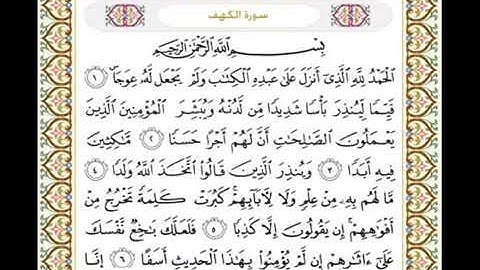 سورة الكهف
بِسْمِ اللَّهِ الرَّحْمَٰنِ الرَّحِيمِ
الْحَمْدُ لِلَّهِ الَّذِي أَنزَلَ عَلَىٰ عَبْدِهِ الْكِتَابَ وَلَمْ يَجْعَل لَّهُ عِوَجًا ۜ ١
قَيِّمًا لِّيُنذِرَ بَأْسًا شَدِيدًا مِّن لَّدُنْهُ وَيُبَشِّرَ الْمُؤْمِنِينَ الَّذِينَ
يَعْمَلُونَ الصَّالِحَاتِ أَنَّ لَهُمْ أَجْرًا حَسَنًا ٢ مَّاكِثِينَ
فِيهِ أَبَدًا ٣ وَيُنذِرَ الَّذِينَ قَالُوا اتَّخَذَ اللَّهُ وَلَدًا ٤
مَّا لَهُم بِهِ مِنْ عِلْمٍ وَلَا لِآبَائِهِمْ ۚ كَبُرَتْ كَلِمَةً تَخْرُجُ مِنْ
أَفْوَاهِهِمْ ۚ إِن يَقُولُونَ إِلَّا كَذِبًا ٥ فَلَعَلَّكَ بَاخِعٌ نَّفْسَكَ
عَلَىٰ آثَارِهِمْ إِن لَّمْ يُؤْمِنُوا بِهَٰذَا الْحَدِيثِ أَسَفًا ٦ إِنَّا